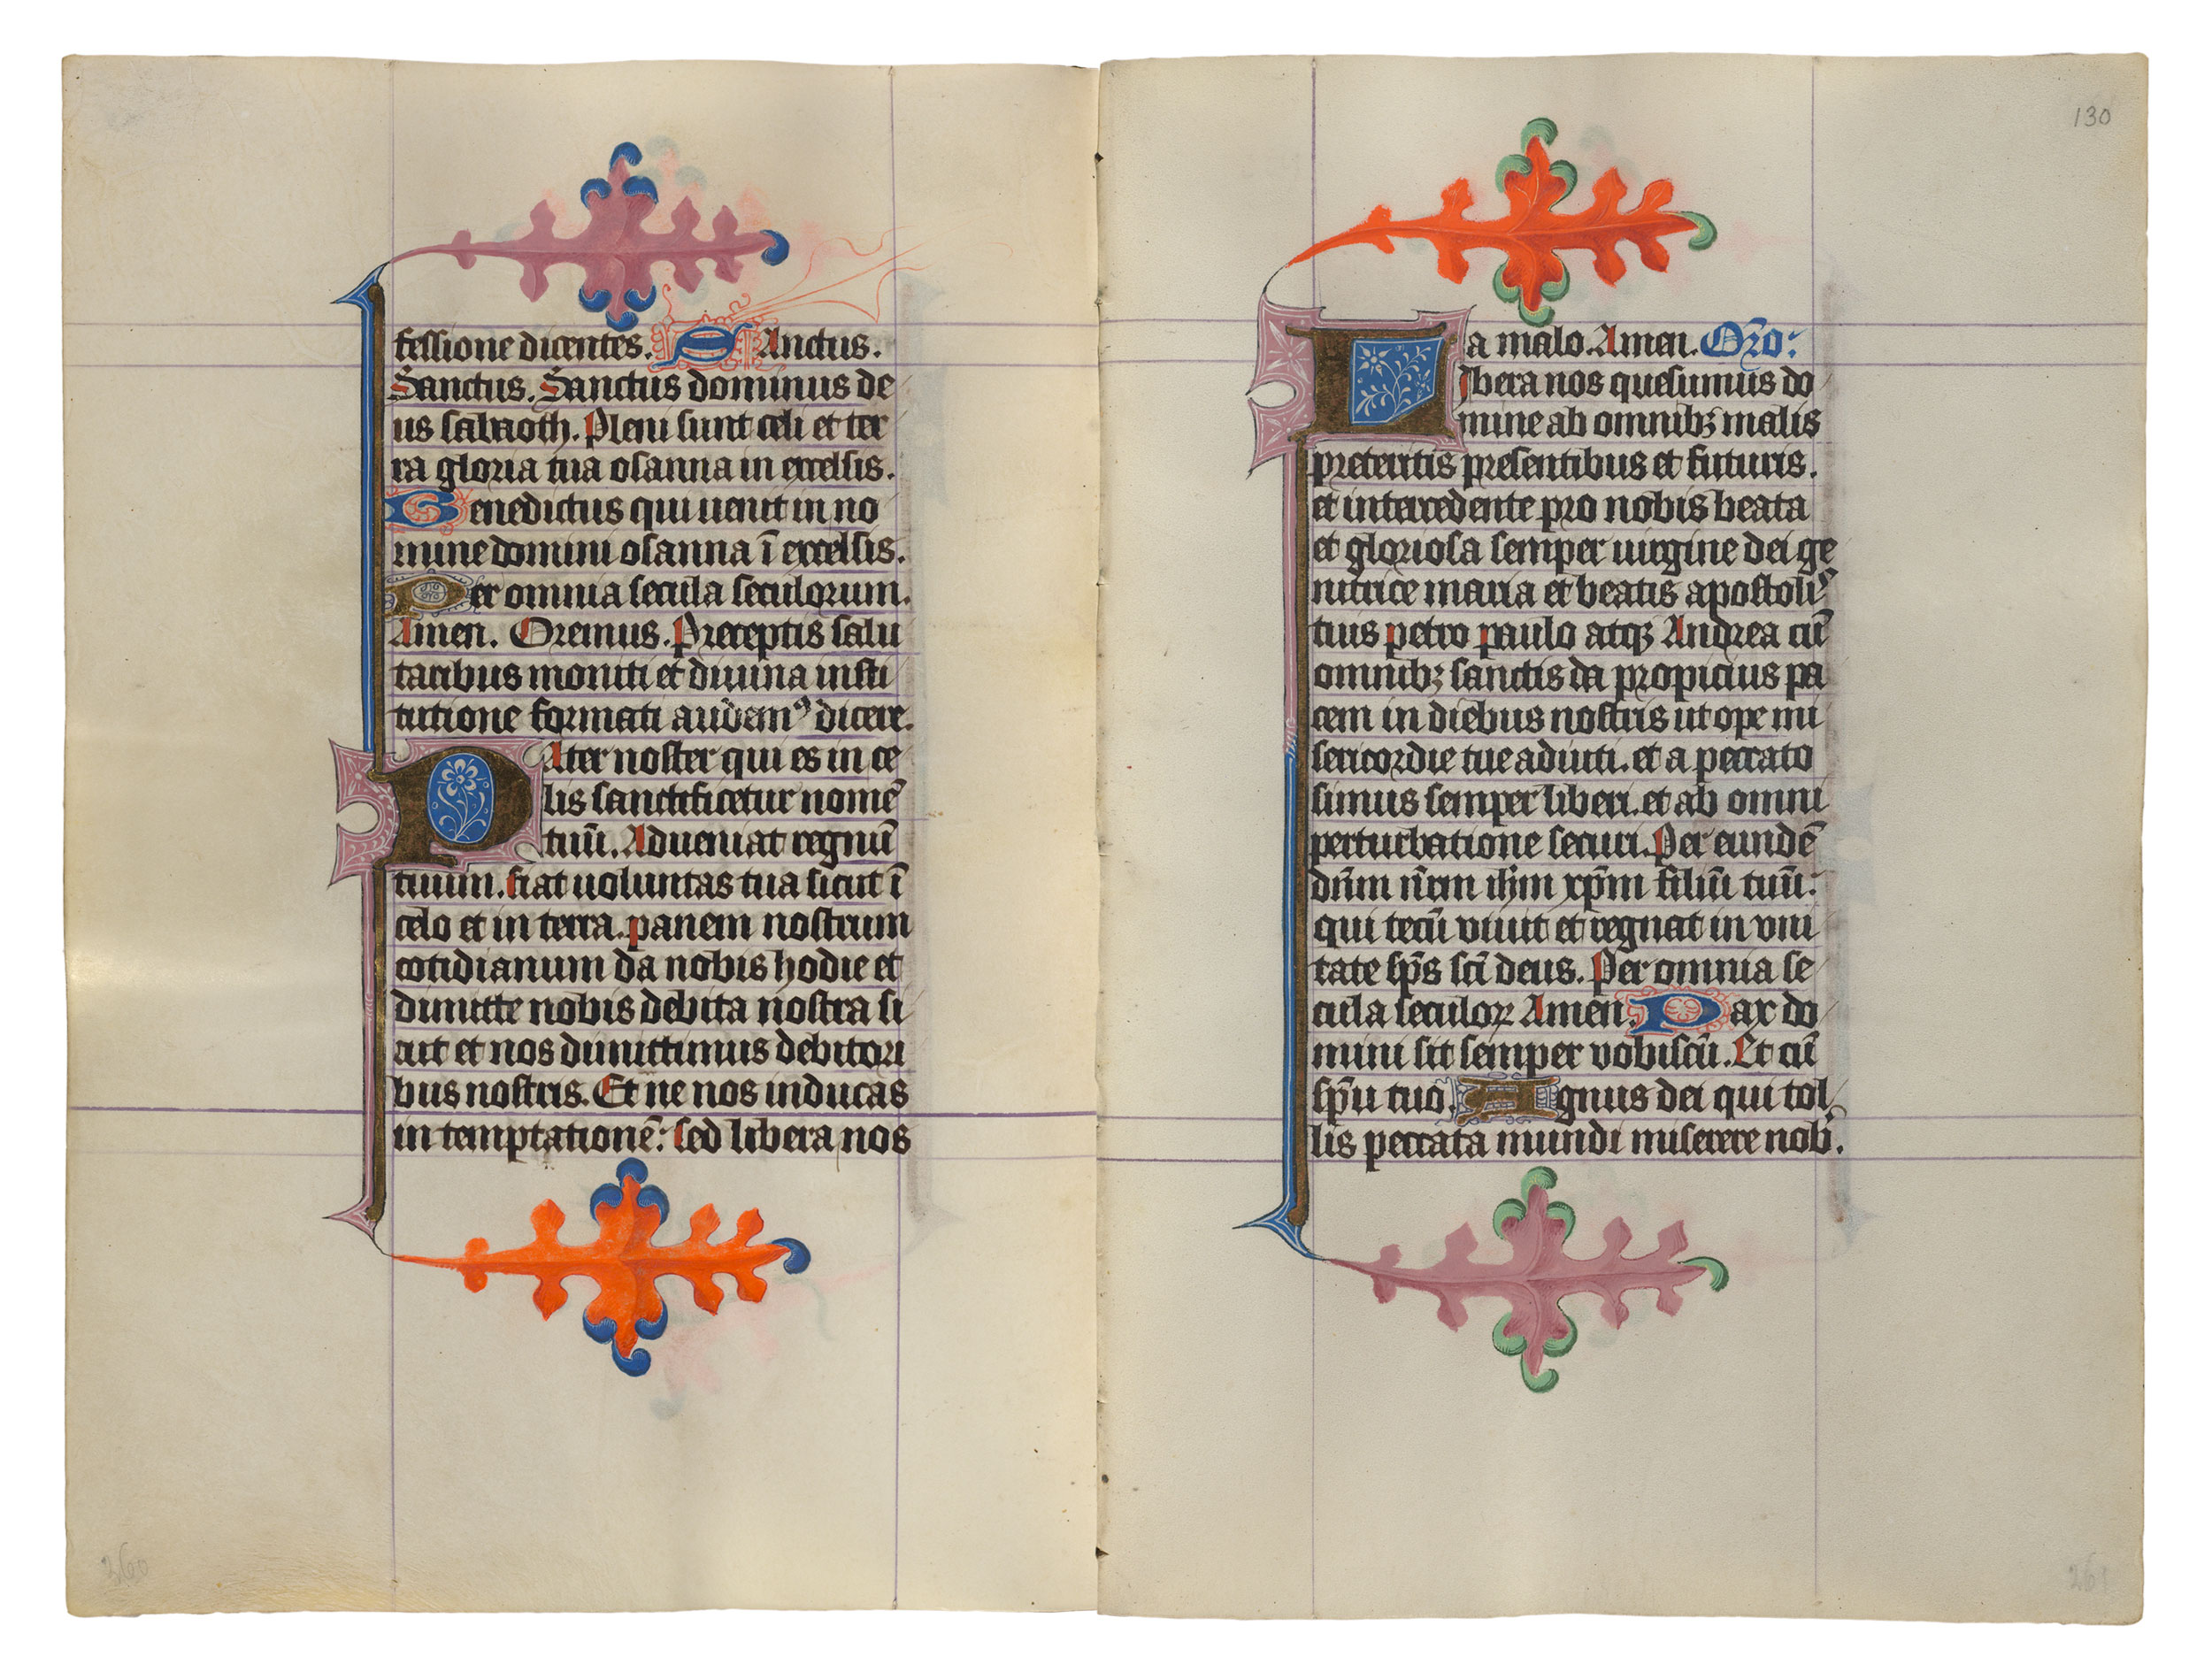 fessione dicentes. SAnctus.
Sanctus. Sanctus dominus de
us sabaoth. Pleni sunt celi et ter
ra gloria tua osanna in excelsis.
Benedictus qui uenit in no
mine domini osanna ī excelsis.
Per omnia secula seculorum.
Amen. Oremus. Preceptis salu
taribus moniti et diuina insti
tutione formati audemꝰ dicere.
PAter noster qui es in ce
lis sanctificetur nomē
tuū. Adueniat regnū
tuum. fiat uoluntas tua sicut ī
celo et in terra. panem nostrum
cotidianum da nobis hodie et
dimitte nobis debita nostra si
cut et nos dimittimus debitori
bus nostris. Et ne nos inducas
in temptationē: sed libera nos
260
130
a malo. Amen. Or̄o:
Libera nos quesumus do
mine ab omnibꝫ malis
preteritis presentibus et futuris.
et intercedente pro nobis beata
et gloriosa semper uirgine dei ge
nitrice maria et beatis apostolis
tuis petro paulo atqꝫ Andrea cū
omnibꝫ sanctis da propicius pa
cem in diebus nostris ut ope mi
sericordie tue adiuti. et a peccato
simus semper liberi. et ab omni
perturbatione securi. Per eundē
dn̄m nr̄m ihm̄ xp̄m filiū tuū:
qui tecū viuit et regnat in vni
tate sp̄s sc̄i deus. Per omnia se
cula seculoꝝ Amen. Pax do
mini sit semper vobiscū. Et cū
sp̄u tuo. Agnus dei qui tol
lis peccata mundi miserere nob̄.
261